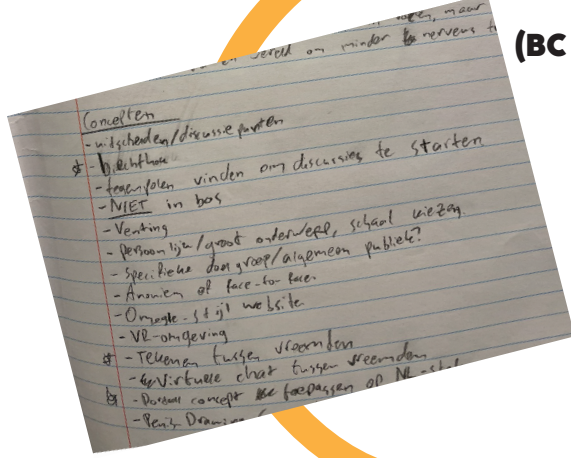 maar
wereld om minder nerveus
(BC
Concepten
- uitschelden/discussie punten
- biechthok
- tegenpolen vinden om discussies te starten
- NIET in bos
- Venting
- persoonlijk/groot onderwerp, schaal kiezen
- Specifieke doelgroep/algemeen publiek?
- Anoniem of face-to-face
- Omegle-stijl website
- VR-omgeving
- Tekenen tussen vreemden
- Virtuele chat tussen vreemden
- concept toepassen op
- Penis Drawing